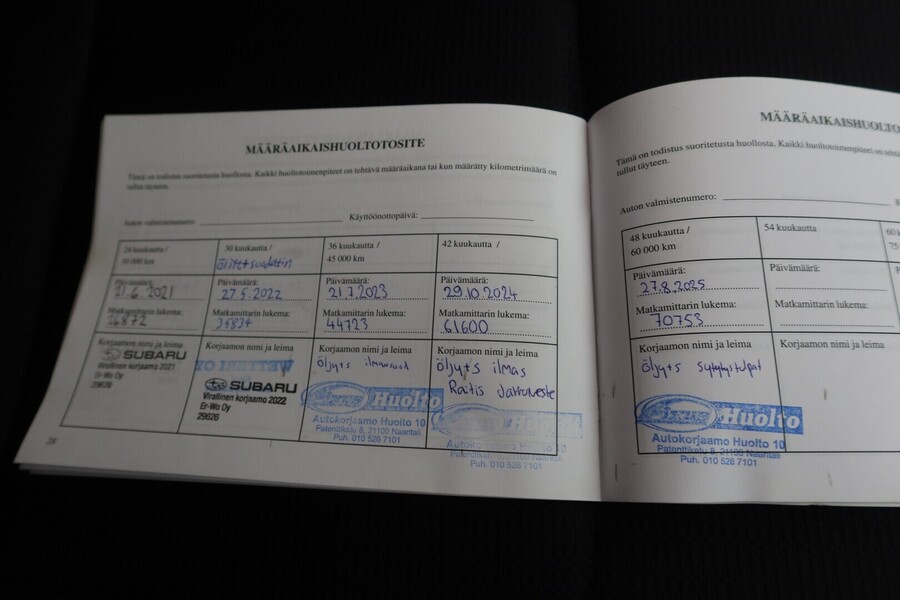 MÄÄRÄAIKAISHUOLTOTOSITE
Tämä on todistus suoritetusta huollosta. Kaikki huoltotoimenpiteet on tehtävä määräaikana tai kun määrätty kilometrimäärä on
tullut täyteen.
Auton valmistenumero
Käyttöönottopäivä:
24 kuukautta /
30 000 km
Päivämäärä:
21.6.2021
Matkamittarin lukema:
26872
Korjaamon nimi ja leima
SUBARU
Virallinen korjaamo 2021
Er-Wo Oy
29626
30 kuukautta /
Päivämäärä:
27.5.2022
Matkamittarin lukema:
Korjaamon nimi ja leima
SUBARU
Virallinen korjaamo 2022
Er-Wo Oy
29626
36 kuukautta /
45 000 km
Päivämäärä:
21.7.2023
Matkamittarin lukema:
44723
Korjaamon nimi ja leima
öljy+s
Huolto
Autokorjaamo Huolto 10
Patenttikatu 8, 21100 Naantali
Puh. 010 526 7101
42 kuukautta /
Päivämäärä:
29.10.2024
Matkamittarin lukema:
61600
Korjaamon nimi ja leima
öljy+s ilmas
Raitis Jarruneste
Puh. 010 526 7101
28
MÄÄRÄAIKAISHUOLTO
Tämä on todistus suoritetusta huollosta. Kaikki huoltotoimenpiteet on
tullut täyteen.
Auton valmistenumero:
48 kuukautta /
60 000 km
Päivämäärä:
27.8.2025
Matkamittarin lukema:
70753
Korjaamon nimi ja leima
öljy+s sytytystulpat
Huolto
Autokorjaamo Huolto 10
Patenttikatu 8, 21100 Naantali
Puh. 010 526 7101
54 kuukautta
Päivämäärä:
Matkamittarin lukema:
Korjaamon nimi ja leima